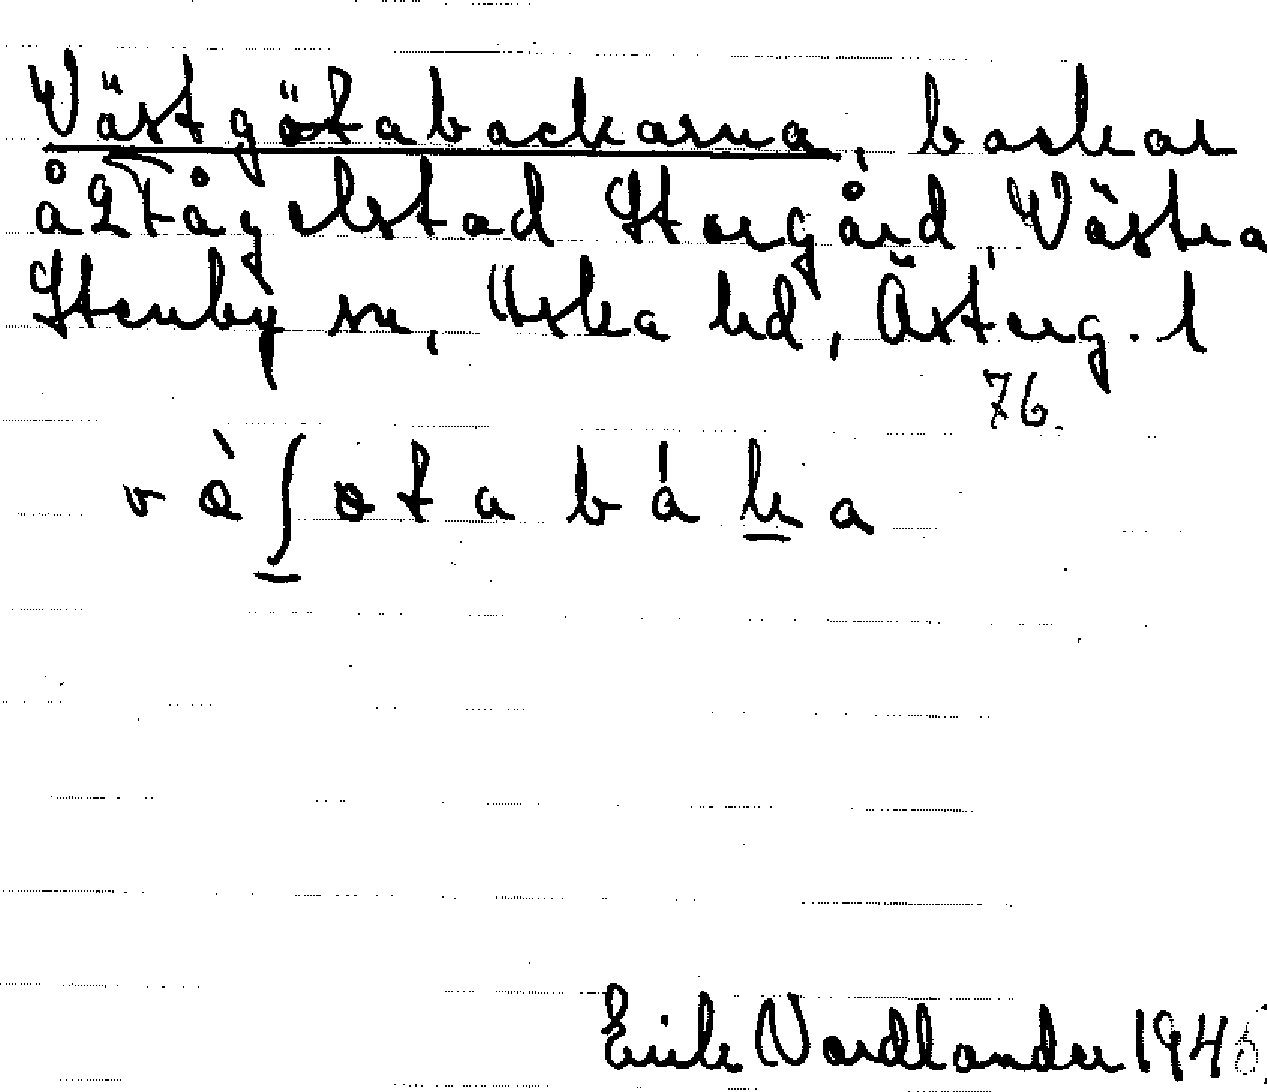 Västgötabackarna, backar
å Tågelstad Storgård, Västra
Stenby sn, Aska hd, Österg. l
76
vàʃota báka
Erik Nordlander 194